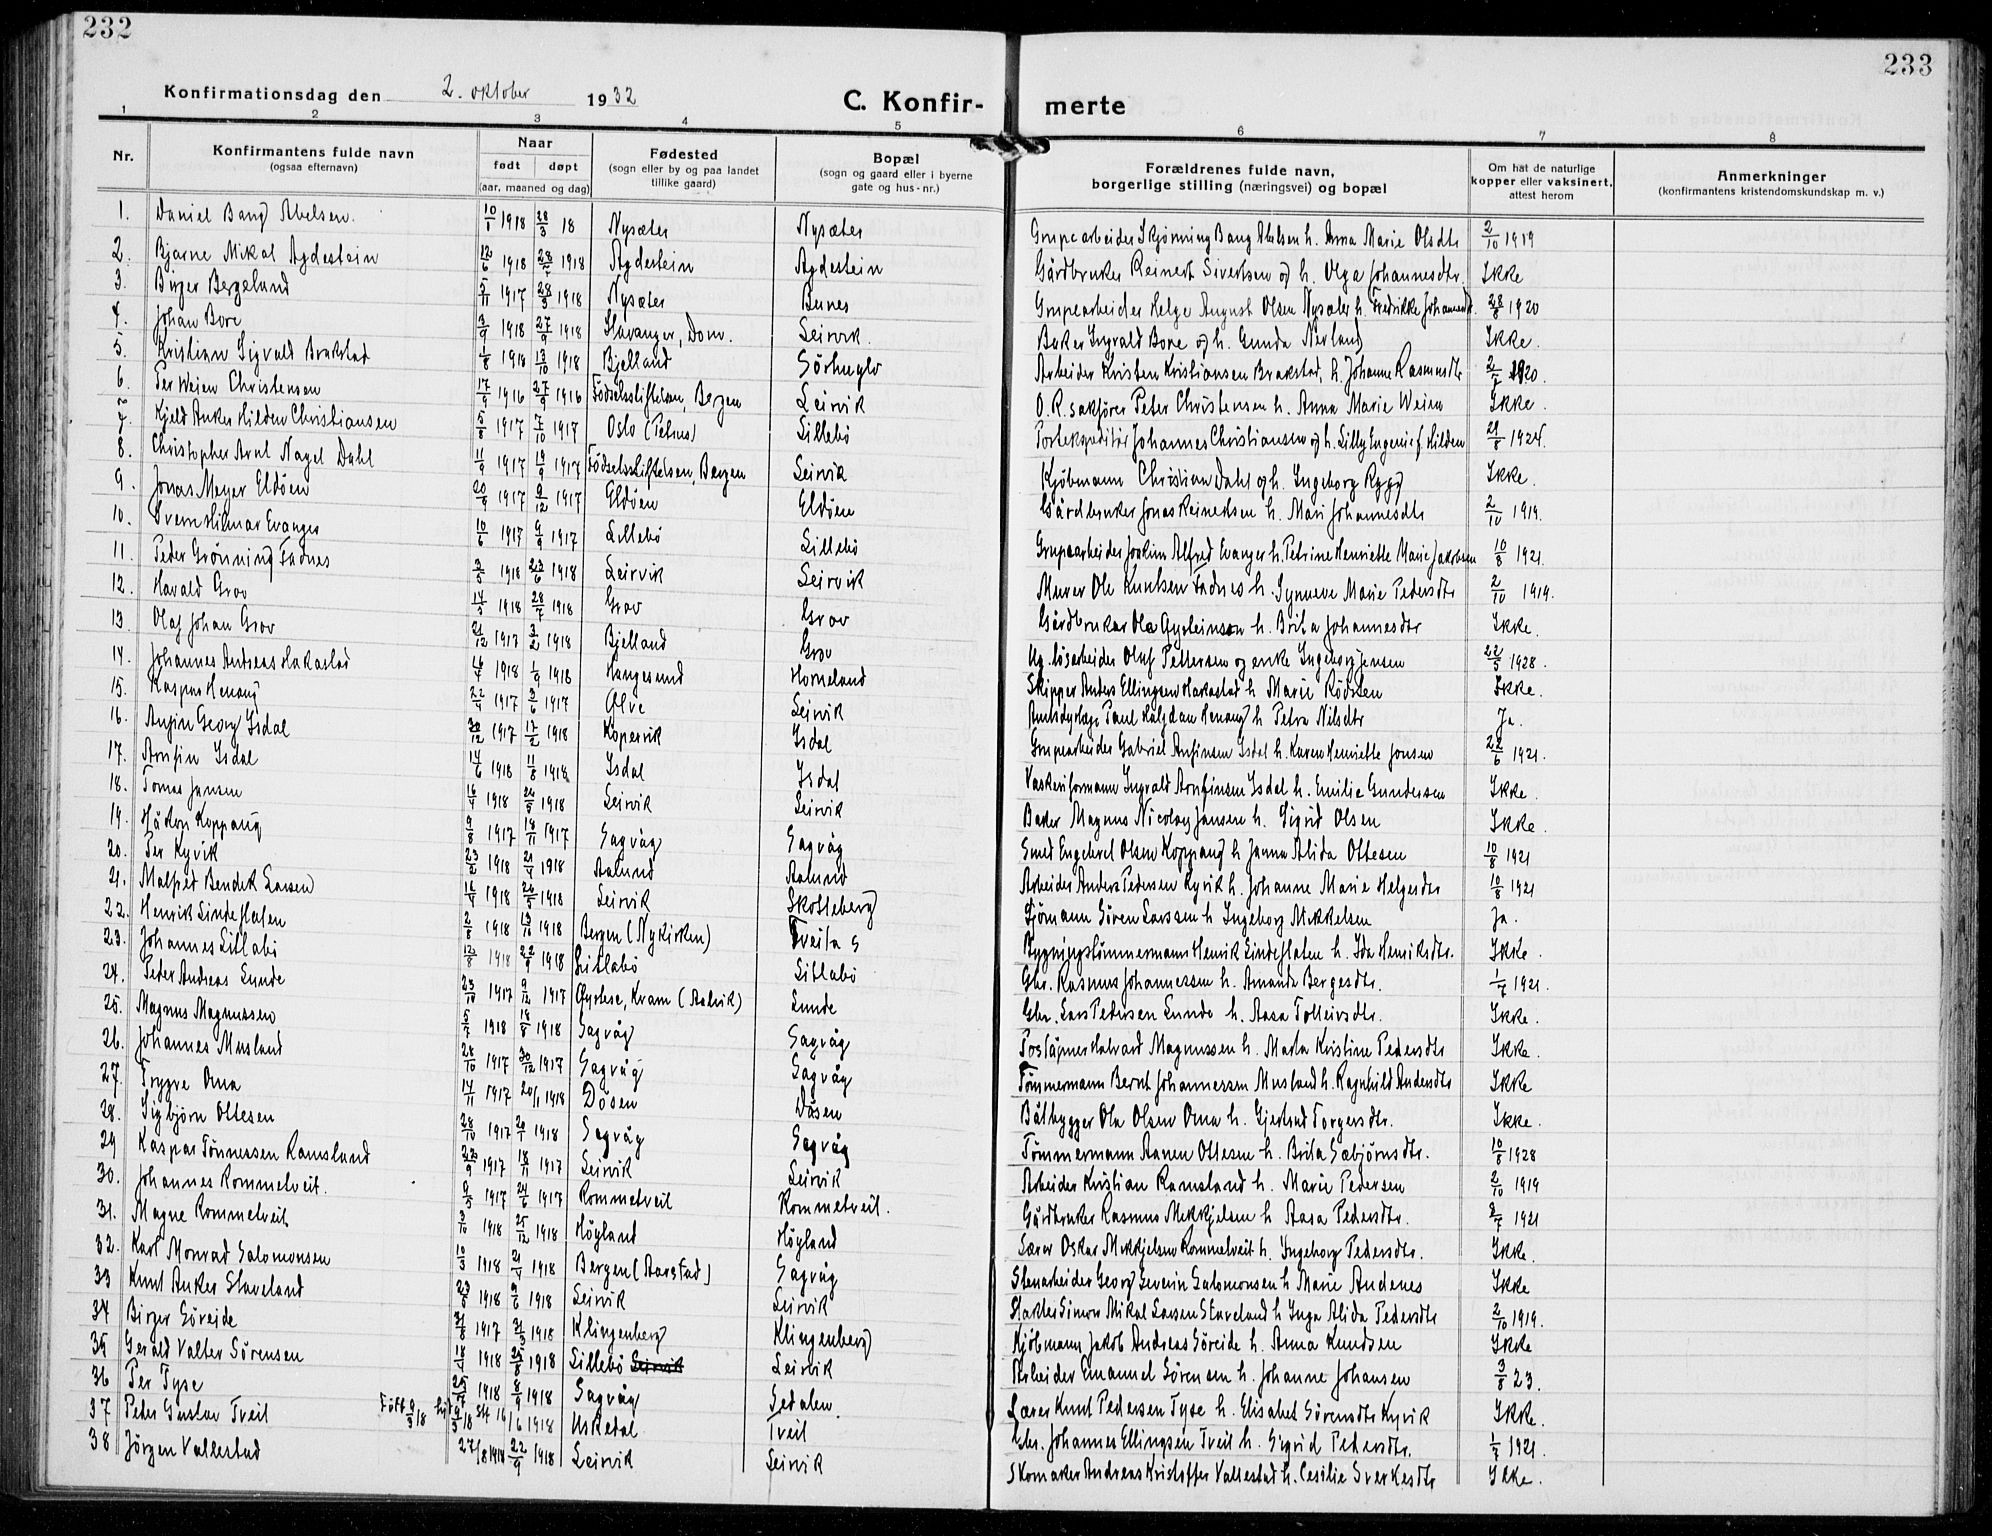 232
233
Konfirmationsdag den 2. oktober 1932
C. Konfir- merte
1 2 3 4 5 6 7 8
Nr.
Konfirmantens fulde navn
(ogsaa efternavn)
Naar
født døpt
(aar, maaned og dag)
Fødested
(sogn eller by og paa landet
tillike gaard)
Bopæl
(sogn og gaard eller i byerne
gate og hus-nr.)
Forældrenes fulde navn,
borgerlige stilling (næringsvei) og bopæl
Om hat de naturlige
kopper eller vaksinert,
attest herom
Anmerkninger
(konfirmantens kristendomskundskap m. v.)
1. Daniel Bang Abelsen. 10/1 1918 28/3 18 Nysæter Nysæter Grupearbeider Skjønning Bang Abelsen h. Anna Marie Olsdtr 2/10 1919
2. Bjarne Mikal Agdestein 12/6 1918 28/7 1918 Agdestein Agdestein Gårdbruker Reinert Sivertsen og h. Olga Johannesdtr. Ikke
3. Birger Bergelund 5/11 1917 28/3 1918 Nysæter Bunes Grupearbeider Helge August Olsen Nysæter h. Fredrikke Johannesdtr. 28/8 1920
4. Johan Bore 3/9 1918 27/9 1918 Stavanger, Dom. Leirvik. Baker Ingvald Bore og h. Gunda Nerland Ikke.
5. Kristian Sigvald Brakstad 1/8 1918 13/10 1918 Bjelland Sörhuglo Arbeider Kristen Kristiansen Brakstad, h. Johanne Rasmusdtr 2/7 1920.
6. Per Weien Christensen 17/9 1916 27/9 1916 Födselsstiftelsen, Bergen Leirvik O.R.sakförer Peter Christensen h. Anna Marie Weien Ikke.
7. Kjeld Anker Hilden Christiansen 5/8 1917 7/10 1917 Oslo (Petrus) Lillebö Christiansen og h. Lilly Eugenie f. Hilden 29/8 1924.
8. Christopher Arnt Nagel Dahl 11/9 1917 19/9 1917 Födselsstiftelsen, Bergen Leirvik Kjöbmann Christian Dahl og h. Ingeborg Rygg Ikke.
9. Jonas Meyer Eldöen 20/9 1917 9/12 1917 Eldöen Eldöen Gårdbruker Jonas Reinertsen h. Mari Johannesdtr 2/10 1919.
10. Sverre Hilmar Evanger 10/6 1917 9/9 1917 Lillebö Lillebö Grupearbeider Joakim Alfred Evanger h. Petrine Henriette Marie Jakobsen 10/8 1921.
11. Peder Grönning Fadnes 3/5 1918 23/6 1918 Leirvik Leirvik Murer Ole Knutsen Fadnes h. Synneve Marie Pedersdtr 2/10 1919.
12. Harald Grov 14/5 1918 28/7 1918 Grov Grov Gårdbruker Ola Aysteinson h. Brita Johannesdtr Ikke.
13. Olaf Johan Grov 21/12 1917 3/2 1918 Bjelland Grov Ug. lösarbeider Oluf Pettersen og enke Ingeborg Jensen 22/5 1928.
14. Johannes Andreas Hakastad 16/4 1918 1/9 1918 Haugesund Horneland Skipper Anders Ellingsen Hakastad h. Marie Ikke.
15. Kaspar Henang 22/4 1917 3/6 1917 Ølve Leirvik Paul Halfdan Henang h. Petra Nilsdtr Ja.
16. Anfin Georg Isdal 30/12 1917 17/2 1918 Kopervik Isdal Grupearbeider Gabriel Anfinsen Isdal h. Karen Henriette Jonsen 22/6 1921.
17. Arnfin Isdal 14/6 1918 11/8 1918 Isdal Isdal Vaskeriformann Ingvald Arnfinsen Isdal h. Emilie Gundersen Ikke.
18. Tomas Jansen 16/4 1918 26/5 1918 Leirvik Leirvik Baker Magnus Nicolay Jansen h. Sigrid Olsen Ikke.
19. Håkon Koppang 9/8 1917 18/11 1917 Sagvåg Sagvåg Smed Engebret Olsen Koppang h. Janna Alida Ottesen 10/8 1921
20. Per Kyvik 23/2 1918 21/4 1918 Aalund Aalund Arbeider Anders Pedersen Kyvik h. Johanne Marie Helgesdtr 10/8 1921
21. Malfred Bendik Larsen 16/4 1918 26/5 1918 Leirvik Skotteberg Sjömann Sören Larssen h. Ingeborg Mikkelsen Ja.
22. Henrik Lindeflaten 2/8 1918 13/10 1918 Bergen (Nykirken) Tveita S Bygningstömmermann Henrik Lindeflaten h. Ida Henriksdtr. Ikke.
23. Johannes Litlabö 13/8 1918 22/9 1918 Litlabö Litlabö Gbr. Rasmus Johannessen h. Amanda Bergesdtr. 1/7 1921.
24. Peder Andreas Lunde 23/10 1917 9/12 1917 Øystese, Kvam (Aalvik) Lunde Gbr. Lars Pedersen Lunde h. Aasa Tolleivsdtr. Ikke.
25. Magnus Magnussen 5/7 1918 18/8 1918 Sagvåg Sagvåg Poståpner Halvard Magnussen h. Marta Kristine Pedersdtr Ikke.
26. Johannes Musland 28/10 1917 30/12 1917 Sagvåg Sagvåg Tömmermann Bernt Johannessen Musland h. Ragnhild Andersdtr Ikke
27. Trygve Oma 14/11 1917 20/1 1918 Dösen Dösen Båtbygger Ola Olsen Oma h. Gjertrud Torgersdtr. Ikke.
28. Sigbjörn Ottesen 28/10 1917 20/1 1918 Sagvåg Sagvåg Tömmermann Aanen Ottesen h. Brita Sæbjörnsdtr. 10/8 1928
29 Kaspar Tönnessen Ramsland 22/9 1917 18/11 1917 Leirvik Leirvik Arbeider Kristian Ramsland h. Marie Pedersen 2/10 1919
30. Johannes Rommetveit. 9/5 1917 24/6 1917 Rommetveit Rommetveit. Gårdbruker Rasmus Mikkjelsen h. Aasa Pedersdtr. 2/7 1921
31. Magne Rommetveit 3/10 1918 25/12 1918 Höyland Höyland Lærer Oskar Mikkjelsen Rommetveit h. Ingeborg Pedersdtr. Ikke.
32. Karl Monrad Salomonsen 10/3 1918 21/4 1918 Bergen (Aarstad) Sagvåg Stenarbeider Georg Severin Salomonsen h. Marie Andenes Ikke
33 Knut Anker Staveland 23/5 1918 9/6 1918 Leirvik Leirvik Slakter Simon Mikal Larsen Staveland h. Inga Alida Pedersdtr 2/10 1919.
34 Birger Söreide 31/8 1917 31/3 1918 Klingenberg Klingenberg Kjöbmann Jakob Andreas Söreide h. Anna Knudsen Ikke
35 Gerald Valter Sörensen 18/4 1918 25/8 1918 Lillebö Leirvik Leirvik Arbeider Emanuel Sörensen h. Johanne Johansen 3/8 23.
36 Per Tyse 25/7 1918 8/9 1918 Sagvåg Sedalen. Lærer Knut Pedersen Tyse h. Elisabet Sörensdtr Kyvik Ikke.
37 Peder Gustav Tveit 9/3 18 16/6 1918 Uskedal Tveit Gbr. Johannes Ellingsen Tveit h. Sigrid Pedersdtr. 1/7 1921.
38 Jörgen Vallestad 27/8 1918 22/9 1918 Leirvik Leirvik Skomaker Andreas Kristoffer Vallestad h. Cesilie Sverkesdtr Ikke.